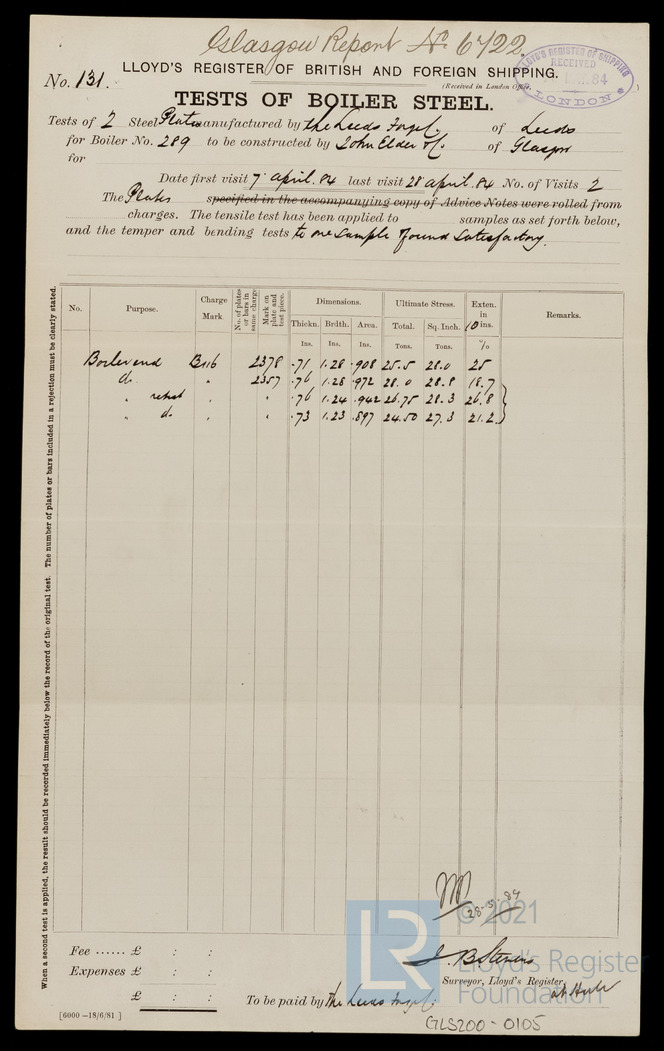 Glasgow Report No. 6722
LLOYD'S REGISTER OF BRITISH AND FOREIGN SHIPPING.
No. 131.
(Received in London Office,
LLOYD'S REGISTER OF SHIPPING RECEIVED 84 LONDON
TESTS OF BOILER STEEL.
Tests of 2 Steel Plates manufactured by the Leeds Forge Co. of Leeds
for Boiler No. 289 to be constructed by John Elder & Co. of Glasgow
for
Date first visit 7 April. 84 last visit 28 April. 84 No. of Visits 2
The Plates specified in the accompanying copy of Advice Notes were rolled from
charges. The tensile test has been applied to samples as set forth below,
and the temper and bending tests to one sample found satisfactory.
No. Purpose. Charge Mark No. of plates or bars in same charge Mark on plate and test piece. Dimensions. Ultimate Stress. Exten. in 10 ins. Remarks.
Thickn. Brdth. Area. Total. Sq. Inch.
Ins. Ins. Ins. Tons. Tons. %
Boiler end B116 2378 .71 1.28 .908 25.5 28.0 25
do. " 2357 .76 1.28 .972 28.0 28.8 18.7
" retest " " .76 1.24 .942 26.75 28.3 26.8
" do. " " .73 1.23 .897 24.50 27.3 21.2
When a second test is applied, the result should be recorded immediately below the record of the original test. The number of plates or bars included in a rejection must be clearly stated.
28.5.84
© 2021
LR Lloyd's Register Foundation
Fee ...... £ : :
J B Stevens
Expenses £ : :
Surveyor, Lloyd's Register,
at Hull
£ : :
To be paid by the Leeds Forge Co.
[6000 –18/6/81]
GLS200-0105